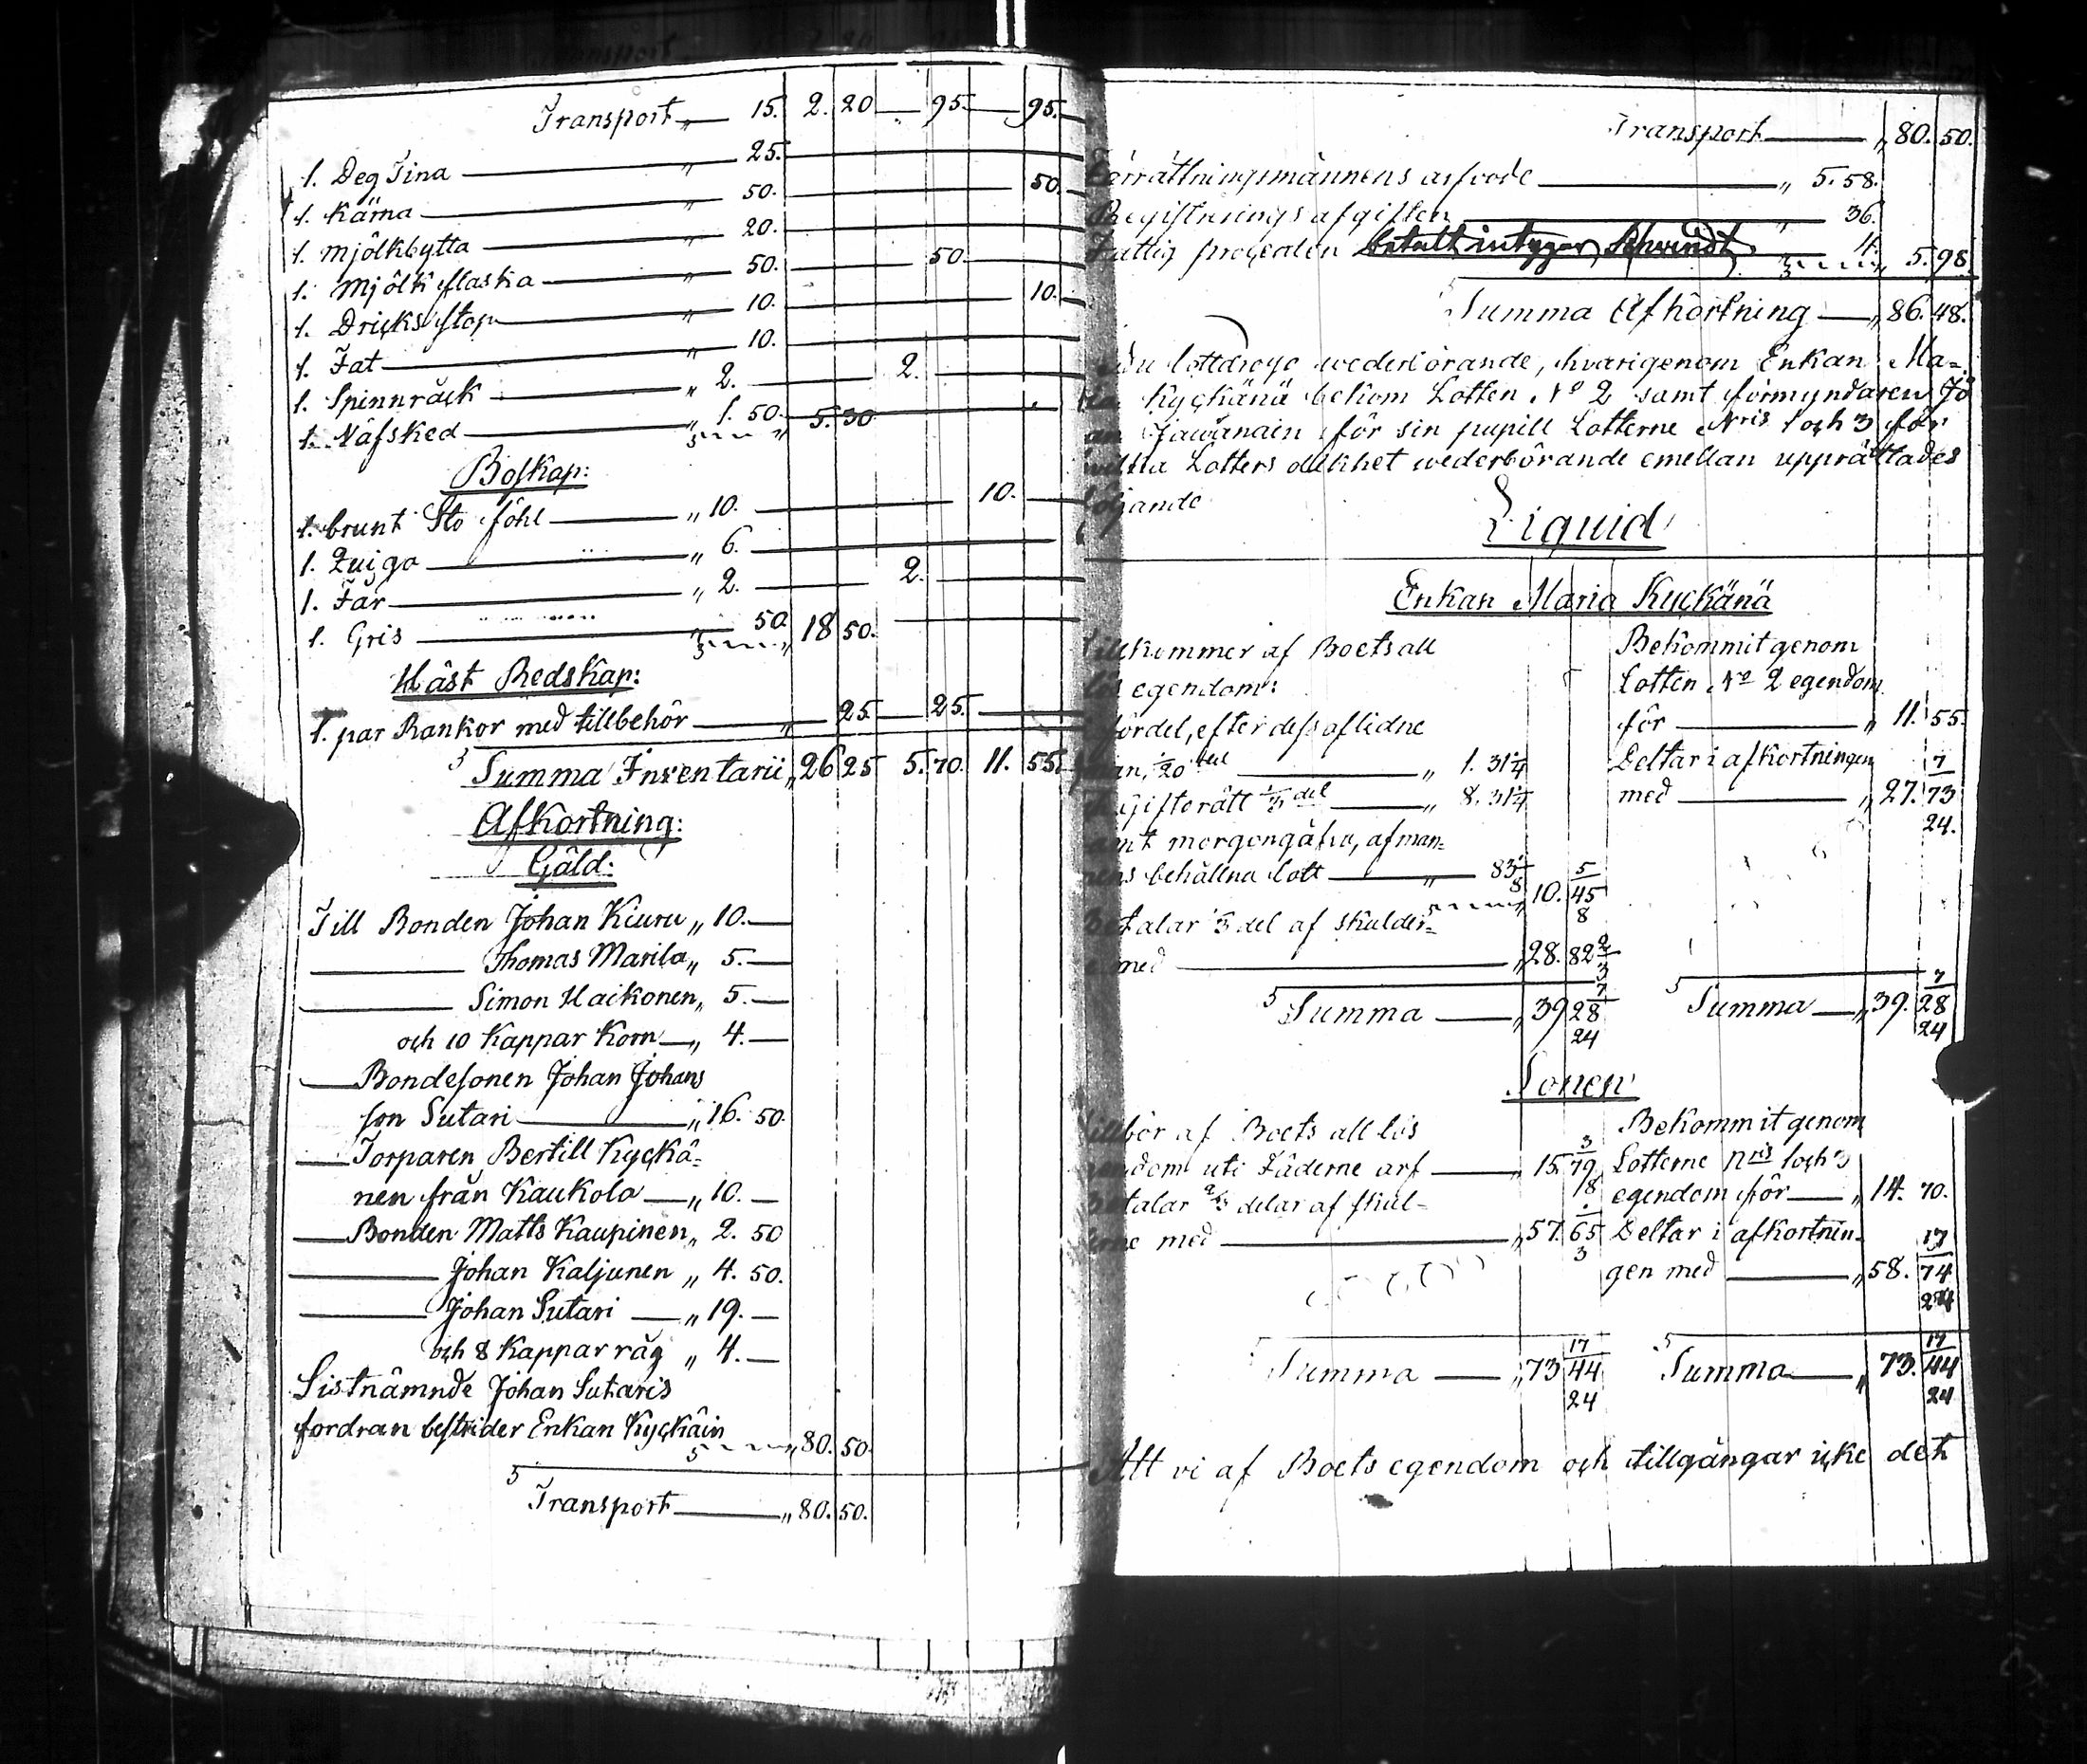 Transport „ 15. 2. 20 95. 95.
1. Deg Tina „ 25.
1. Kärna „ 50. 50.
1. Mjölkbytta „ 20.
1. Mjölkflaska „ 50. 50.
1. Dricks stop „ 10. 10.
1. Fat „ 10.
1. Spinnråck „ 2. 2.
1. Näfsked „ 1. 50. 5. 30
Boskap:
1. brunt Sto föhl „ 10. 10.
1. Quiga „ 6.
1. Får „ 2. 2.
1. Gris 50. 18 50.
Häst Redskap:
1. par Rankor med tillbehör „ 25 25.
Summa Inventarii „ 26 25 5. 70. 11. 55.
Afkortning:
Gäld:
Till Bonden Johan Kiuru „ 10.—
Thomas Marila „ 5.—
Simon Haikonen „ 5.—
och 10 Kappar Korn „ 4.—
Bondesonen Johan Johans
son Sutari „ 16. 50.
Torparen Bertill Kyckä-
nen från Kaukola „ 10.—
Bonden Matts Kaupinen „ 2. 50
Johan Kaljunen „ 4. 50.
Johan Sutari „ 19.—
och 8 Kappar råg „ 4.—
Sistnämnde Johan Sutaris
fordran bestrider Enkan Kyckäin
„ 80. 50.
Transport „ 80. 50.
Transport „ 80. 50.
Förrättningsmännens arfvode „ 5. 58.
Registreringsafgiften „ 36.
Fattig procenten betalt intygar Schvindt 4. 5. 98.
Summa Afkortning „ 86. 48.
lottdrogo wederbörande, hvarigenom Enkan Ma-
ria Kyckänä bekom Lotten No 2 samt förmyndaren Jo
an för sin pupill Lotterne Nris 1 och 3 för
Lotters olikhet wederbörande emellan upprättades
följande
Liquid
Enkan Maria Kyckänä
tillkommer af Boets all
lös egendom:
fördel, efter dess aflidne
man, 1/20 del „ 1. 31 1/4
Giftorätt 1/3 del „ 8. 31 1/4
samt morgongåfva, af man-
nens behållna lott „ 83 1/8 10. 45 5/8
Betalar 1/3 del af skulder-
ne med „ 28. 82 2/3
Summa „ 39 28 7/24
Bekommit genom
Lotten No 2 egendom
för „ 11. 55.
Deltar i afkortningen
med „ 27. 73 7/24.
Summa „ 39. 28 7/24
Sonen
tillhör af Boets all lös
egendom uti Fäderne arf 15 79 3/8
Betalar 2/3 delar af skul-
derne med „ 57. 65 1/3
Summa „ 73 44 17/24
Bekommit genom
Lotterne Nris 1 och 3
egendom för „ 14. 70.
Deltar i afkortnin-
gen med „ 58. 74 17/24
Summa „ 73. 44 17/24
Att vi af Boets egendom och tillgångar icke det